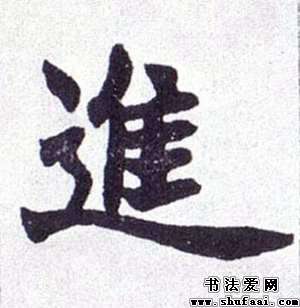 進
书法爱网
www.shufaai.com